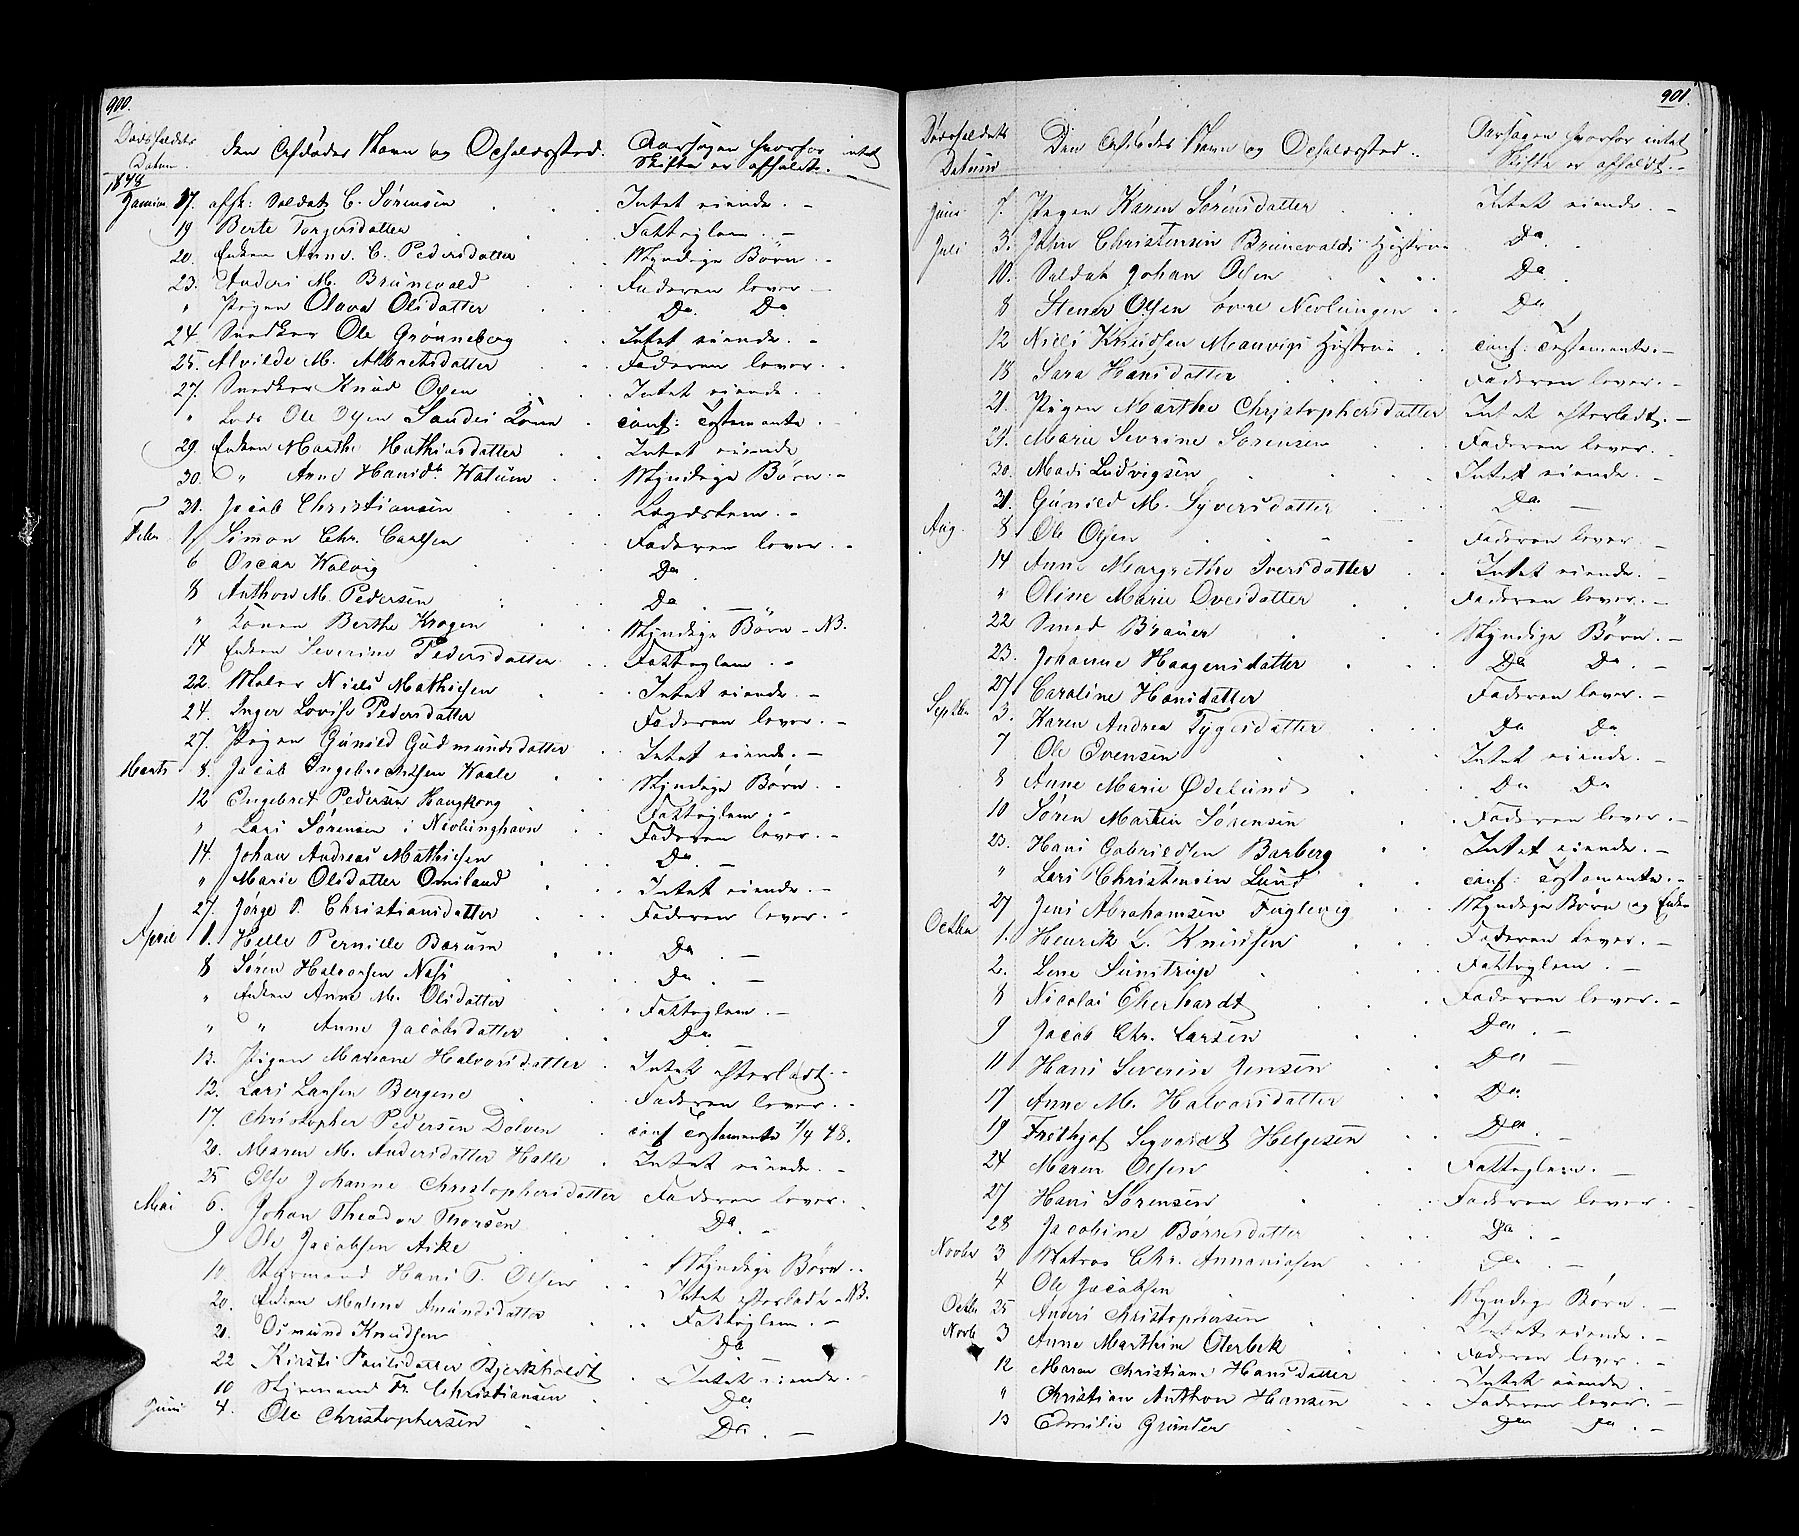 900.
Dødsfaldets Datum
den Afdødes Navn og Opholdssted.
Aarsagen hvorfor intet Skifte er afholdt.
1848
Januar 17. afsk: Soldat C. Sørensen Intet eiende. -
19 Berte Torgersdatter Fattiglem. -
20. Enken Anne C. Pedersdatter Myndige Børn. -
23. Anders M. Brunevald Faderen lever -
" Pigen Olava Olsdatter Do. Do
24. Snedker Ole Grønneberg Intet eiende. -
25. Alvilde M. Albretsdatter Faderen lever. -
27. Snedker Knud Olsen Intet eiende.
" Lods Ole Olsen Sandes Kone conf: Testamente.
29. Enken Marthe Mathiasdatter Intet eiende
30. " Anne Hansdt. Myndige Børn. -
31. Jacob Christiansen Lægdslem. -
Febr. 1 Simon Chr. Carlsen Faderen lever. -
6 Oscar Walvig Do
8 Anthon M. Pedersen Do. -
" Konen Berthe Krogen Myndige Børn - NB.
14 Enken Severine Pedersdatter Fattiglem. -
22. Maler Niels Mathisen Intet eiende. -
24. Inger Lovise Pedersdatter Faderen lever. -
27. Pigen Gunild Gudmundsdatter Intet eiende. -
Marts 8. Jacob Ingebrechtsen Myndige Børn. -
12 Engebret Pedersen Fattiglem. -
" Lars Sørensen i Nevlunghavn Faderen lever. -
14. Johan Andreas Mathisen Do. -
" Marie Olsdatter Omsland Intet eiende. -
27. Jørge P. Christiansdatter Faderen lever. -
April 1. Helle Pernille Barum Do. -
8 Søren Halvorsen Næss Do. -
" Enken Anne M. Olsdatter Fattiglem. -
" " Anne Jacobsdatter Do. -
13. Pigen Mariane Halvorsdatter Intet efterladt. -
12. Lars Larsen Bergene Faderen lever. -
17. Christopher Pedersen Dolven conf Testamente 1/4 48.
20. Maren M. Andersdatter Halle Intet eiende. -
25 Else Johanne Christophersdatter Faderen lever.
Mai 6. Johan Theodor Thorsen Do. -
9 Ole Jacobsen Aske
10. Styrmand Hans T. Olsen Myndige Børn. -
20. Enken Malene Amundsdatter Intet efterladt. NB.
21. Osmund Knudsen Fattiglem. -
22 Kirsti Paulsdatter Bjerkholdt Do
10 Styrmand Fr. Christiansen Intet eiende. -
Juni 4. Ole Christophersen Do
Do. -
901.
Dødsfaldets Datum
Den Afdødes Navn og Opholdssted.
Aarsagen hvorfor intet Skifte er afholdt. -
Juni 7. Pigen Karen Sørensdatter Intet eiende. -
Juli 3. John Christensen Brunevalds Hustrue Do.
10. Soldat Johan Olsen Do.
8 Stener Olsen øvre Nevlungen Do
12 Niels Knudsen Manvigs Hustrue conf: Testamente. -
18 Sara Hansdatter Faderen lever. -
21. Pigen Marthe Christophersdatter Intet efterladt. -
24. Marie Sevrine Sørensen Faderen lever.
30. Mads Ludvigsen Intet eiende. -
31. Gunild M. Syversdatter Do. -
Aug. 8 Ole Olsen Faderen lever. -
14 Anne Margrethe Iversdatter Intet eiende. -
" Oline Marie Ovesdatter Faderen lever. -
22 Smed Brauer Myndige Børn. -
23. Johanne Haagensdatter Do Do. -
27 Caroline Hansdatter Faderen lever. -
Septbr 3. Karen Andrea Tygesdatter Do Do.
7 Ole Evensen Intet eiende. -
8 Anne Marie Ødelund Do Do
10 Søren Martin Sørensen Faderen lever. -
23. Hans Gabrielsen Barberg Intet eiende. -
" Lars Christensen Lund conf: Testamente. -
27 Jens Abrahamsen Fuglevig Myndige Børn og Enke
Octbr 1. Henrik L. Knudsen Faderen lever. -
2. Lene Sunstrup Fattiglem. -
8 Nicolai Eherhardt Faderen lever. -
9 Jacob Chr. Larsen Do. -
11 Hans Severin Jensen Do -
17 Anne M. Halvorsdatter Do.
19 Frithjof Segvardt Helgesen Do. -
24 Maren Olsen Fattiglem. -
27 Hans Sørensen Faderen lever.
28 Jacobine Børresdatter Do. -
Novbr 3 Matros Chr. Annaniasen Do. -
4 Ole Jacobsen Myndige Børn. -
Octbr 25 Anders Christophersen Intet eiende. -
Novb 3 Anne Marthein Oterbek Faderen lever. -
12 Maren Christiane Hansdatter Intet eiende. -
" Christian Anthon Hansen Faderen lever. -
13 Emilie Grønder Do Do. -